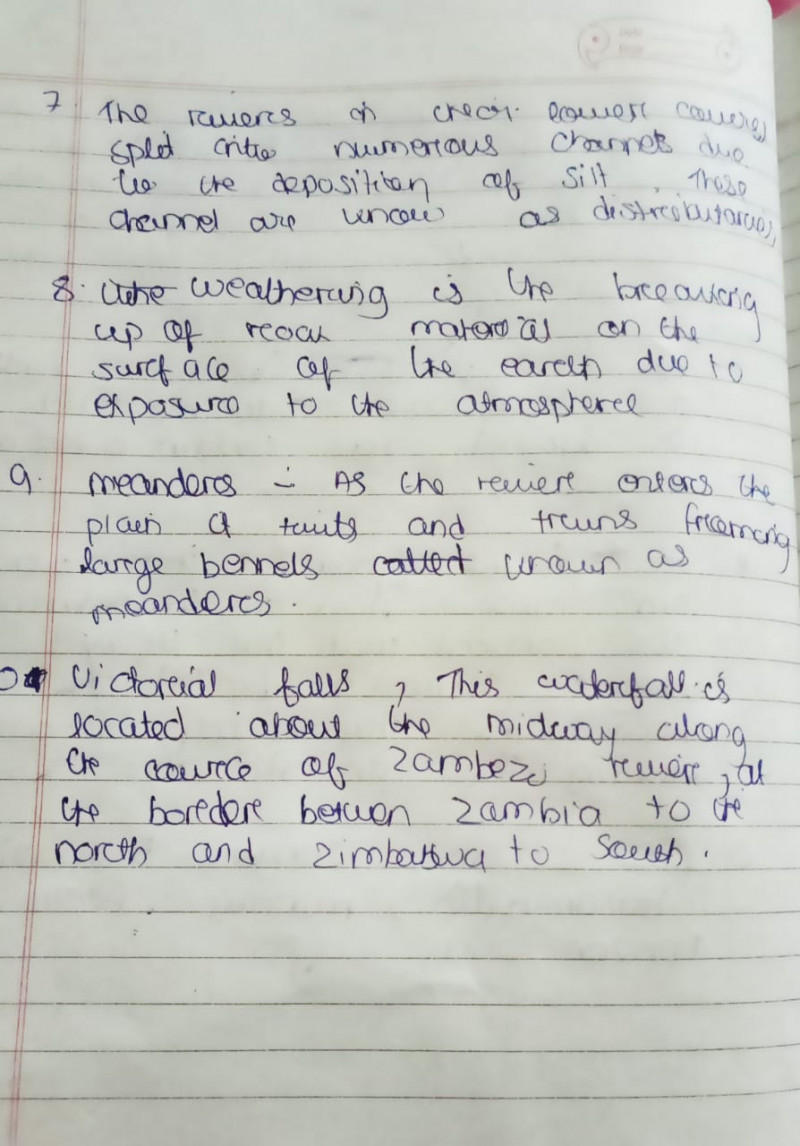 7. The rivers in their lower course
split into numerous channels due
to the deposition of silt, These
channel are known as distributaries,
8. the weathering is the breaking
up of rock material on the
surface of the earth due to
exposure to the atmosphere
9. meanders :- As the river enters the
plain it twits and truns freeming
large bennels called known as
meanders.
Victorial falls, This waterfall is
located about the midway along
the cource of Zambezi river, at
the bordere betwen Zambia to the
north and Zimbabwa to south.